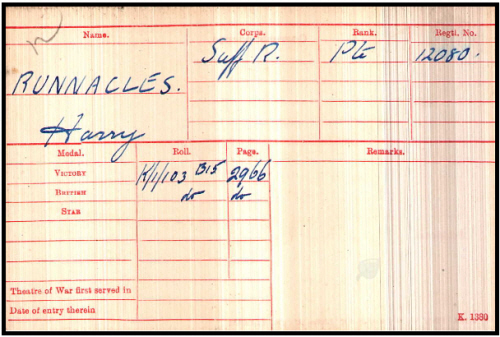 Name. Corps. Rank. Regtl. No.
RUNNACLES. Suff R. Pte 12080.
Harry
Medal. Roll. Page. Remarks.
VICTORY K/1/103 B15 2966
BRITISH do do
STAR
Theatre of War first served in
Date of entry therein
K. 1380